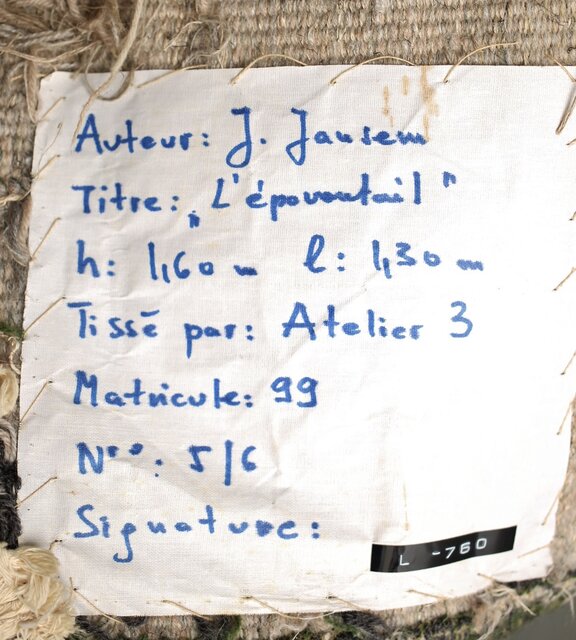 Auteur: J. Jansem
Titre: „L'épouvantail"
h: 1,60 m l: 1,30 m
Tissé par: Atelier 3
Matricule: 99
N°°: 5/6
Signature:
L -760